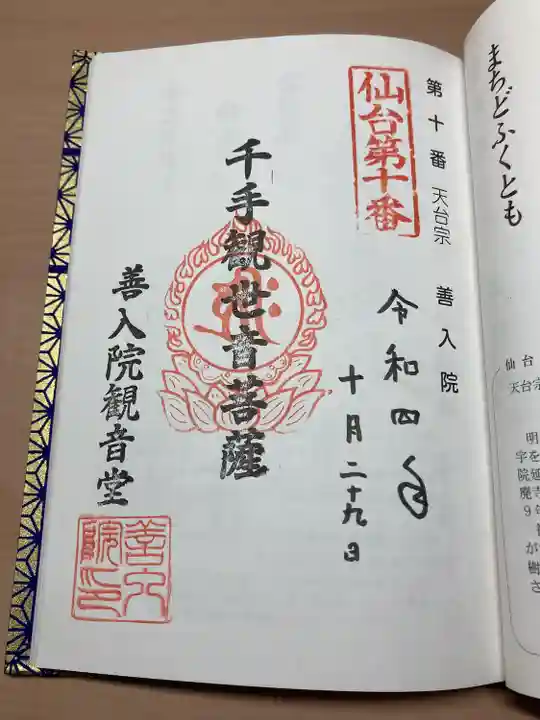 まちどふくとも
仙台
天台宗
明
字を
院延
廃寺
9年
が
樹
さ
第十番 天台宗 善入院
仙台第十番
令和四年
十月二十九日
千手観世音菩薩
善入院観音堂
善入
院印